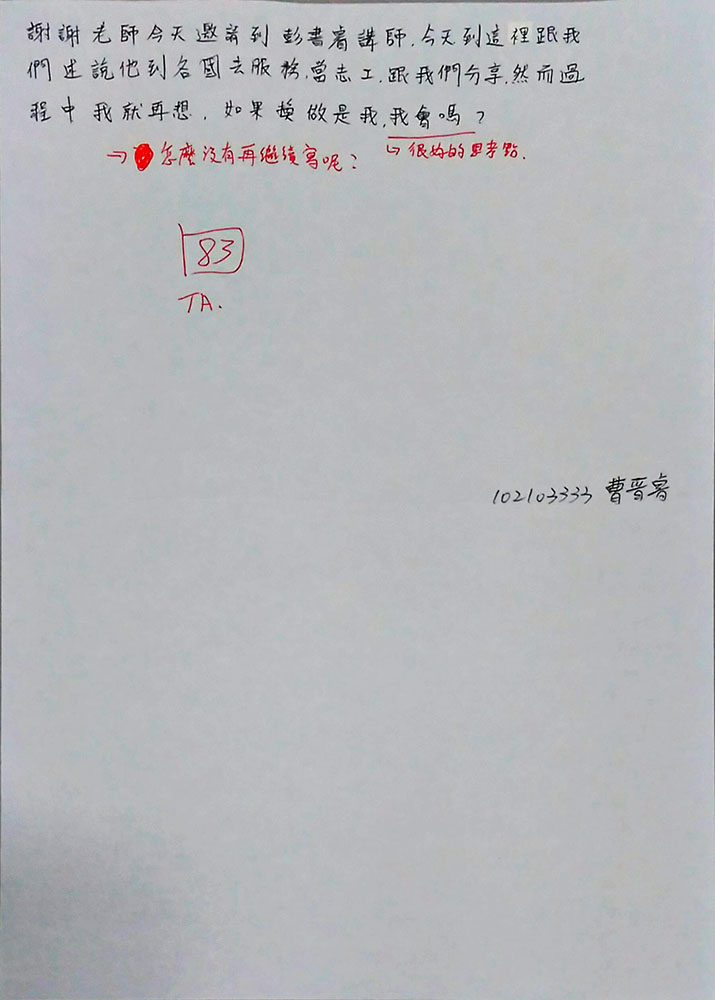 謝謝老師今天邀請到彭書睿講師,今天到這裡跟我
們述說他到各國去服務,當志工,跟我們分享,然而過
程中我就再想,如果換做是我,我會嗎?
→ 怎麼沒有再繼續寫呢?
↳ 很好的思考點.
83
TA.
102103333 曹晋睿